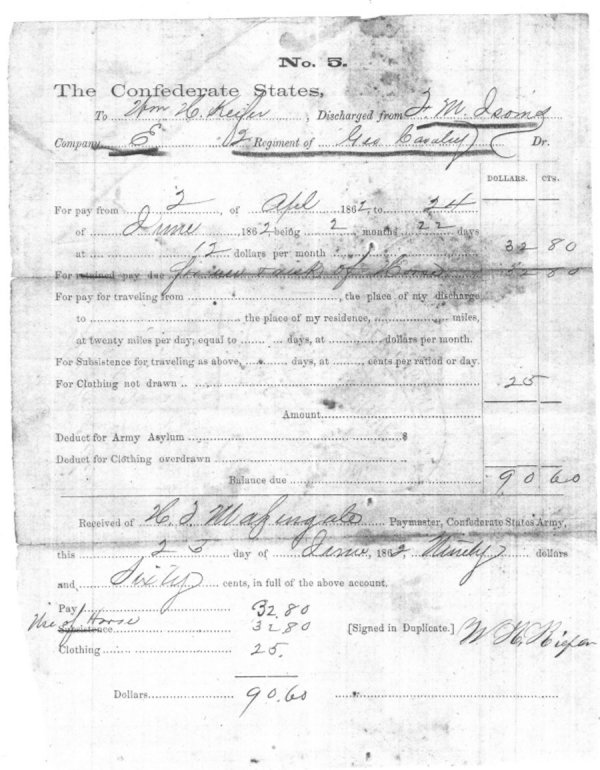 No. 5.
The Confederate States,
To Wm H. Keifer, Discharged from F. M. Isom's
Company E 2 Regiment of Geo Cavalry Dr.
DOLLARS. CTS.
For pay from 2, of April 1862, to 24
of June, 1862 being 2 months 22 days
at 12 dollars per month 32 80
For retained pay due for use of Horse 32 80
For pay for traveling from, the place of my discharge
to the place of my residence, miles,
at twenty miles per day; equal to days, at dollars per month.
For Subsistence for traveling as above, days, at, cents per ration or day.
For Clothing not drawn 25
Amount
Deduct for Army Asylum $
Deduct for Clothing overdrawn
Balance due 90 60
Received of Paymaster, Confederate States Army,
this 25 day of June, 1862. Ninety dollars
and Sixty cents, in full of the above account.
Pay 32.80
Use of Horse
Subsistence 32 80 [Signed in Duplicate.] W H. Kiefer
Clothing 25.
Dollars 90.60